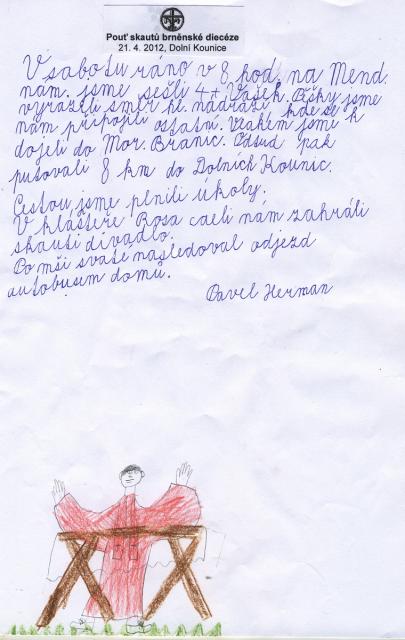 Pouť skautů brněnské diecéze
21. 4. 2012, Dolní Kounice
V sobotu ráno v 8 hod. na Mend.
nám. jsme sešli 4 + Vašek. Pěšky jsme
vyrazili směr hl. nádraží, kde se
nám připojili ostatní. Vlakem jsme
dojeli do Mor. Bránic. Odsud pak
putovali 8 km do Dolních Kounic.
Cestou jsme plnili úkoly.
V klášteře Rosa coeli nám zahráli
skauti divadlo.
Po mši svaté následoval odjezd
autobusem domů.
Pavel Herman